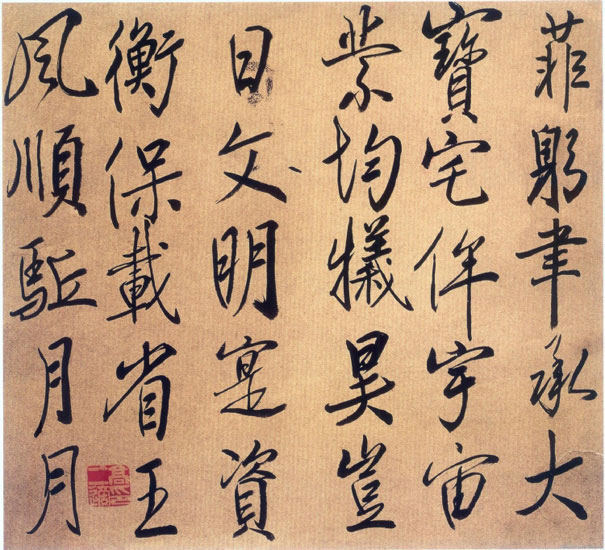 菲躬聿承大
寶宅侔宇宙
業均犧昊豈
日文明寔資
衡保載省王
風順駈月月